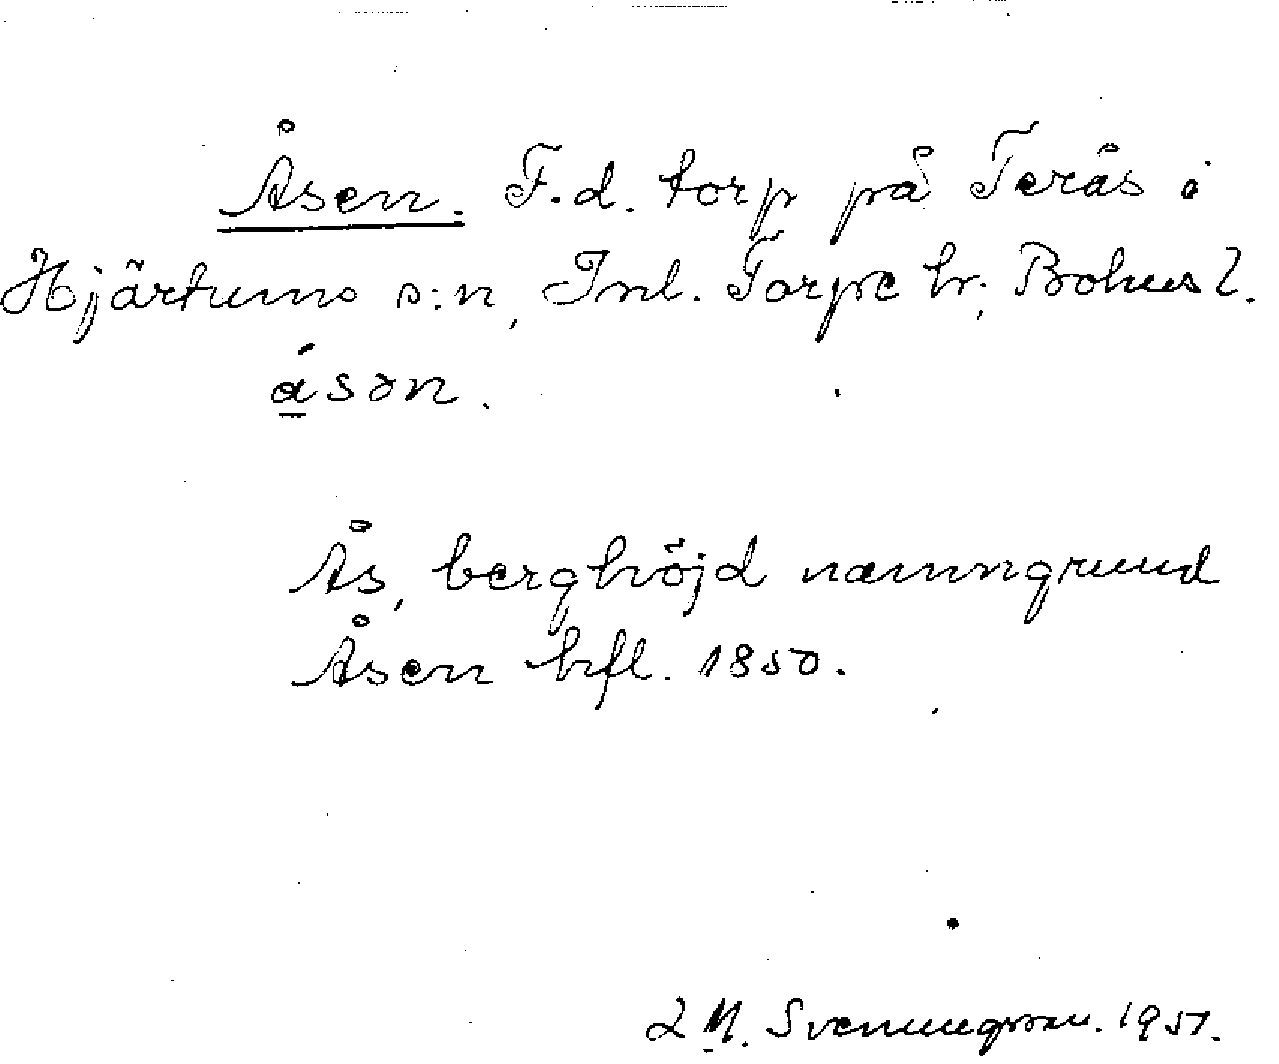 Åsen. F.d. torp på Terås i
Hjärtums s:n, Inl. Torpe hr, Bohusl.
åsən.
Ås, berghöjd namngrund
Åsen hfl. 1850.
M. Svenungsson. 1951.